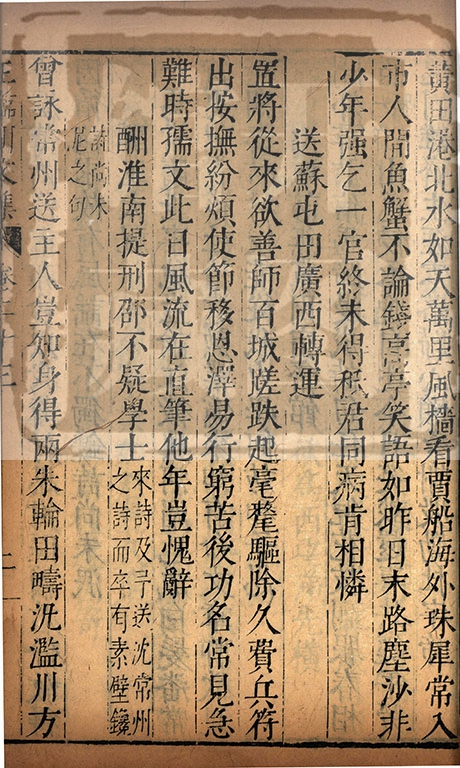 黃田港北水如天萬里風檣看賈船海外珠犀常入
市人間魚蟹不論錢高亭笑語如昨日末路塵沙非
少年强乞一官終未得秪君同病肯相憐
送蘇屯田廣西轉運
置將從來欲善師百城蹉跌起毫釐驅除久費兵符
出按撫紛煩使節移恩澤易行窮苦後功名常見急
難時孺文此日風流在直筆他年豈愧辭
酬淮南提刑邵不疑學士來詩及予送沈常州之詩而卒有素壁鑱
詩尚未
泥之句
曾詠常州送主人豈知身得兩朱輪田疇汎濫川方
王臨川文集
卷二十三
二